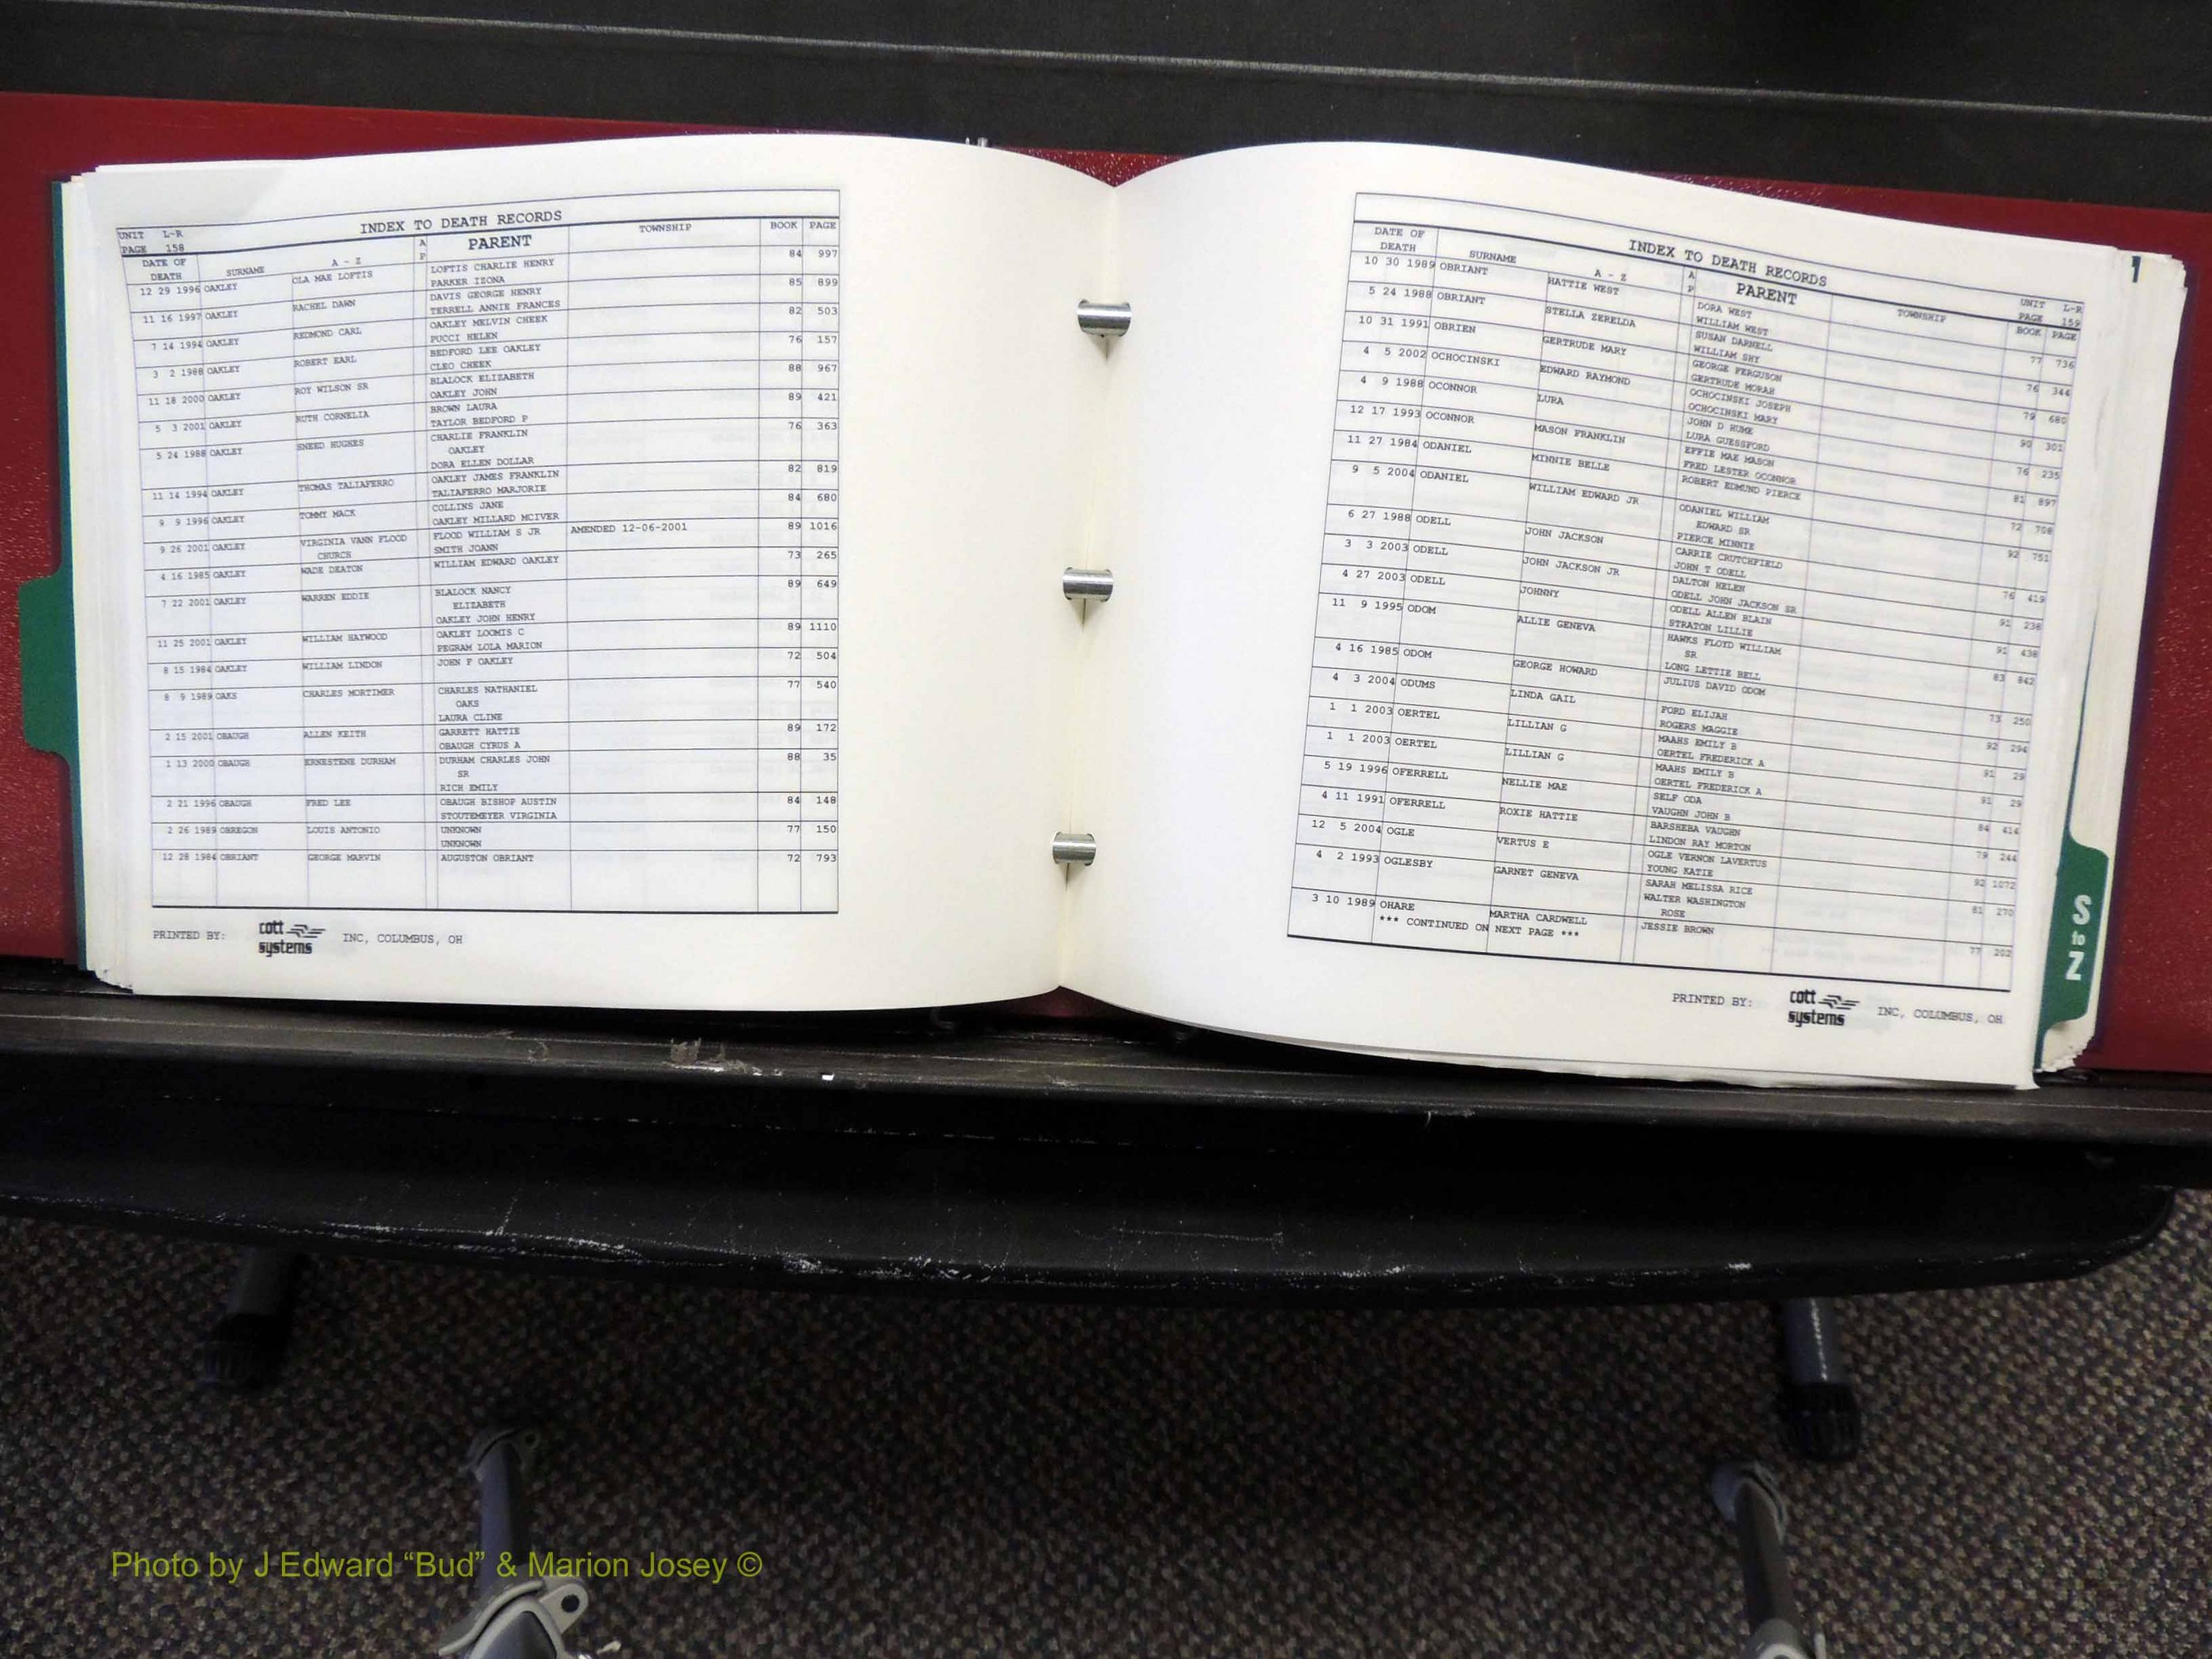 INDEX TO DEATH RECORDS
UNIT L-R
PAGE 158
DATE OF DEATH SURNAME A - Z A P PARENT TOWNSHIP BOOK PAGE
12 29 1996 OAKLEY OLA MAE LOFTIS LOFTIS CHARLIE HENRY 84 997
PARKER IZONA
11 16 1997 OAKLEY RACHEL DAWN DAVIS GEORGE HENRY 85 899
TERRELL ANNIE FRANCES
7 14 1994 OAKLEY REDMOND CARL OAKLEY MELVIN CHEEK 82 503
PUCCI HELEN
3 2 1988 OAKLEY ROBERT EARL BEDFORD LEE OAKLEY 76 157
CLEO CHEEK
11 18 2000 OAKLEY ROY WILSON SR BLALOCK ELIZABETH 88 967
OAKLEY JOHN
5 3 2001 OAKLEY RUTH CORNELIA BROWN LAURA 89 421
TAYLOR BEDFORD P
5 24 1988 OAKLEY SNEED HUGHES CHARLIE FRANKLIN 76 363
OAKLEY
DORA ELLEN DOLLAR
11 14 1994 OAKLEY THOMAS TALIAFERRO OAKLEY JAMES FRANKLIN 82 819
TALIAFERRO MARJORIE
9 9 1996 OAKLEY TOMMY MACK COLLINS JANE 84 680
OAKLEY MILLARD MCIVER
9 26 2001 OAKLEY VIRGINIA VANN FLOOD FLOOD WILLIAM S JR AMENDED 12-06-2001 89 1016
CHURCH SMITH JOANN
4 16 1985 OAKLEY WADE DEATON WILLIAM EDWARD OAKLEY 73 265
7 22 2001 OAKLEY WARREN EDDIE BLALOCK NANCY 89 649
ELIZABETH
OAKLEY JOHN HENRY
11 25 2001 OAKLEY WILLIAM HAYWOOD OAKLEY LOOMIS C 89 1110
PEGRAM LOLA MARION
8 15 1984 OAKLEY WILLIAM LINDON JOHN F OAKLEY 72 504
8 9 1989 OAKS CHARLES MORTIMER CHARLES NATHANIEL 77 540
OAKS
LAURA CLINE
2 15 2001 OBAUGH ALLEN KEITH GARRETT HATTIE 89 172
OBAUGH CYRUS A
1 13 2000 OBAUGH ERNESTENE DURHAM DURHAM CHARLES JOHN 88 35
SR
RICH EMILY
2 21 1996 OBAUGH FRED LEE OBAUGH BISHOP AUSTIN 84 148
STOUTEMEYER VIRGINIA
2 26 1989 OBREGON LOUIS ANTONIO UNKNOWN 77 150
UNKNOWN
12 28 1984 OBRIANT GEORGE MARVIN AUGUSTON OBRIANT 72 793
PRINTED BY: cott systems INC, COLUMBUS, OH
INDEX TO DEATH RECORDS
UNIT L-R
PAGE 159
DATE OF DEATH SURNAME A - Z A P PARENT TOWNSHIP BOOK PAGE
10 30 1989 OBRIANT HATTIE WEST DORA WEST 77 736
WILLIAM WEST
5 24 1988 OBRIANT STELLA ZERELDA SUSAN DARNELL 76 344
WILLIAM SHY
10 31 1991 OBRIEN GERTRUDE MARY GEORGE FERGUSON 79 680
GERTRUDE MORAH
4 5 2002 OCHOCINSKI EDWARD RAYMOND OCHOCINSKI JOSEPH 90 301
OCHOCINSKI MARY
4 9 1988 OCONNOR LURA JOHN D HUME 76 235
LURA GUESSFORD
12 17 1993 OCONNOR MASON FRANKLIN EFFIE MAE MASON 81 897
FRED LESTER OCONNOR
11 27 1984 ODANIEL MINNIE BELLE ROBERT EDMUND PIERCE 72 708
9 5 2004 ODANIEL WILLIAM EDWARD JR ODANIEL WILLIAM 92 751
EDWARD SR
PIERCE MINNIE
6 27 1988 ODELL JOHN JACKSON CARRIE CRUTCHFIELD 76 419
JOHN T ODELL
3 3 2003 ODELL JOHN JACKSON JR DALTON HELEN 91 236
ODELL JOHN JACKSON SR
4 27 2003 ODELL JOHNNY ODELL ALLEN BLAIN 91 438
STRATON LILLIE
11 9 1995 ODOM ALLIE GENEVA HAWKS FLOYD WILLIAM 83 842
SR
LONG LETTIE BELL
4 16 1985 ODOM GEORGE HOWARD JULIUS DAVID ODOM 73 250
4 3 2004 ODUMS LINDA GAIL FORD ELIJAH 92 294
ROGERS MAGGIE
1 1 2003 OERTEL LILLIAN G MAAHS EMILY B 91 29
OERTEL FREDERICK A
1 1 2003 OERTEL LILLIAN G MAAHS EMILY B 91 29
OERTEL FREDERICK A
5 19 1996 OFERRELL NELLIE MAE SELF ODA 84 414
VAUGHN JOHN B
4 11 1991 OFERRELL ROXIE HATTIE BARSHEBA VAUGHN 79 244
LINDON RAY MORTON
12 5 2004 OGLE VERTUS E OGLE VERNON LAVERTUS 92 1072
YOUNG KATIE
4 2 1993 OGLESBY GARNET GENEVA SARAH MELISSA RICE 81 270
WALTER WASHINGTON
ROSE
3 10 1989 OHARE MARTHA CARDWELL JESSIE BROWN 77 202
*** CONTINUED ON NEXT PAGE ***
PRINTED BY: cott systems INC, COLUMBUS, OH
S to Z
Photo by J Edward “Bud” & Marion Josey ©